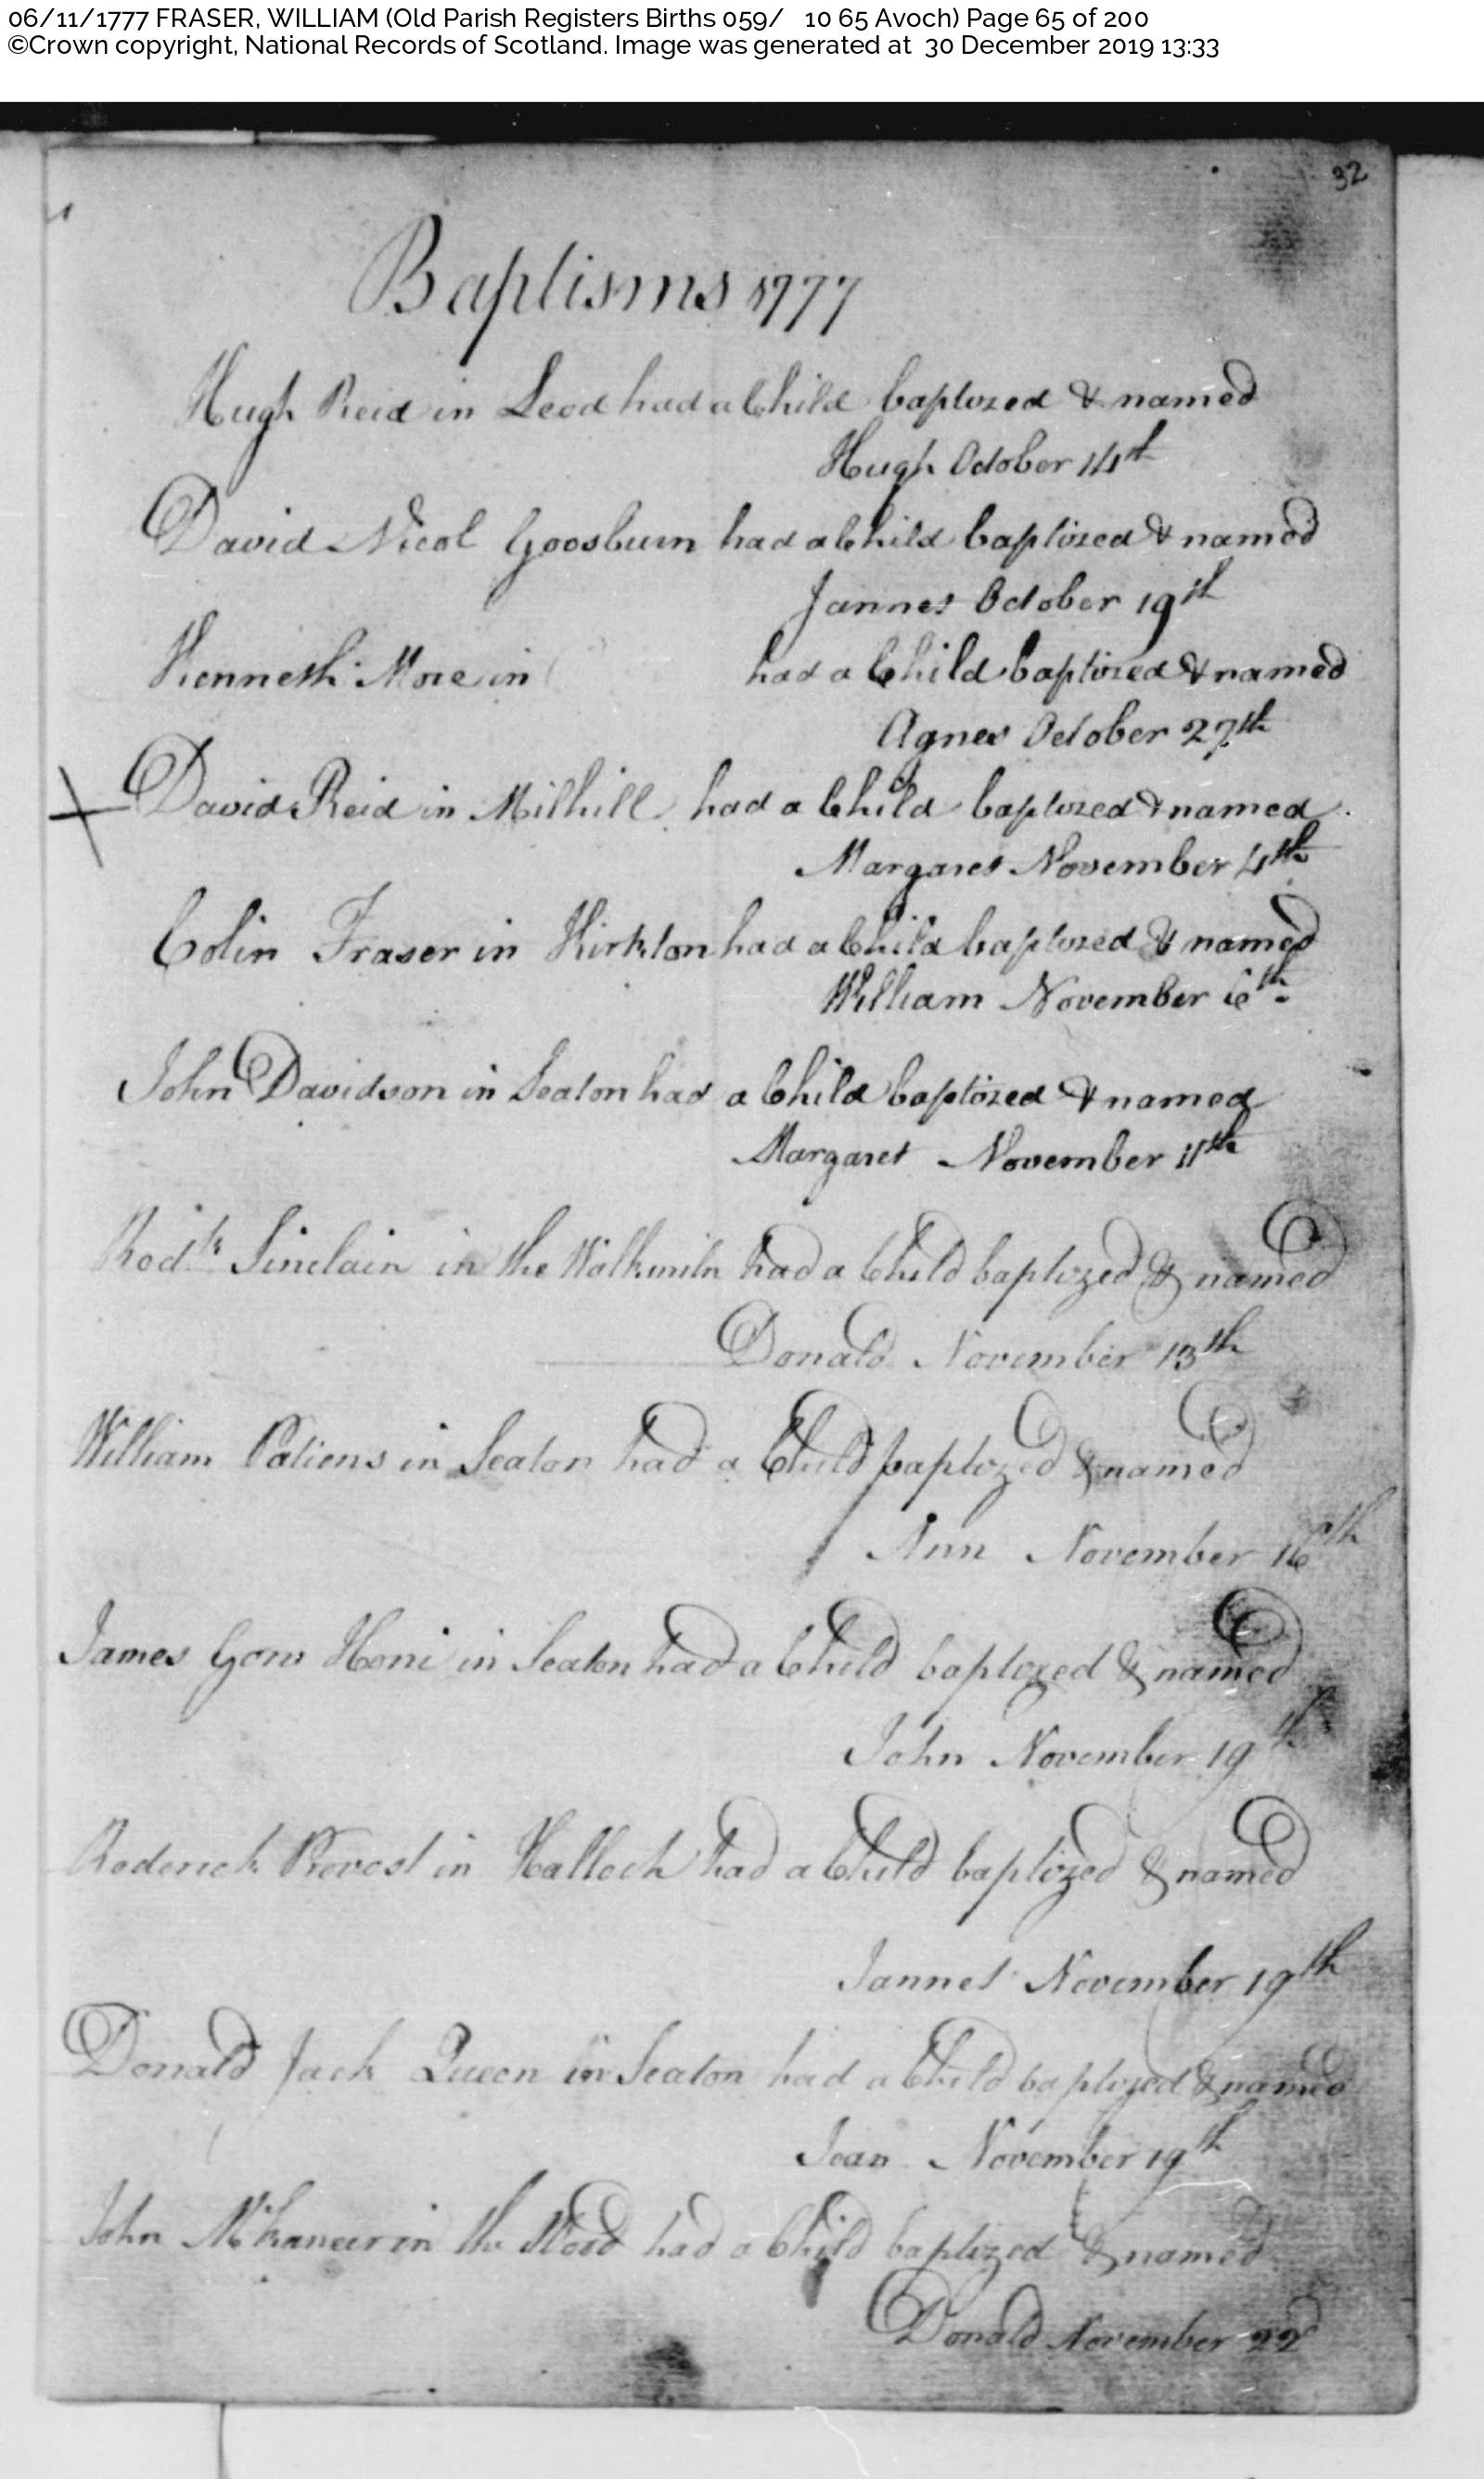 06/11/1777 FRASER, WILLIAM (Old Parish Registers Births 059/ 10 65 Avoch) Page 65 of 200
©Crown copyright, National Records of Scotland. Image was generated at 30 December 2019 13:33
32
Baptisms 1777
Hugh Reid in Leod had a Child baptized & named
Hugh October 14th
David Nicol Goosburn had a Child baptized & named
Jannet October 19th
Kenneth More in had a Child baptized & named
Agnes October 27th
David Reid in Milhill had a Child baptized & named
Margaret November 4th
Colin Fraser in Kirkton had a Child baptized & named
William November 6th
John Davidson in Seaton had a Child baptized & named
Margaret November 11th
Rodk Sinclair in the Walkmiln had a Child baptized & named
Donald November 13th
William Patiens in Seaton had a Child baptized & named
Ann November 16th
James Gow in Seaton had a Child baptized & named
John November 19th
Roderick Provost in Halloch had a Child baptized & named
Jannet November 19th
Donald Jack Queen in Seaton had a Child baptized & named
Jean November 19th
John in the Wood had a Child baptized & named
Donald November 22d